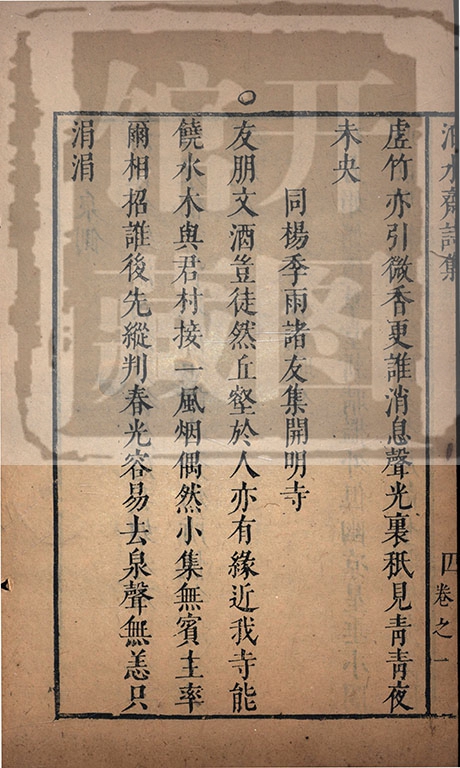 虛竹亦引微香更誰消息聲光裏秖見靑靑夜
未央
同楊季雨諸友集開明寺
友朋文酒豈徒然丘壑於人亦有緣近我寺能
饒水木與君村接一風烟偶然小集無賓主率
爾相招誰後先縱判春光容易去泉聲無恙只
涓涓
四
卷之一